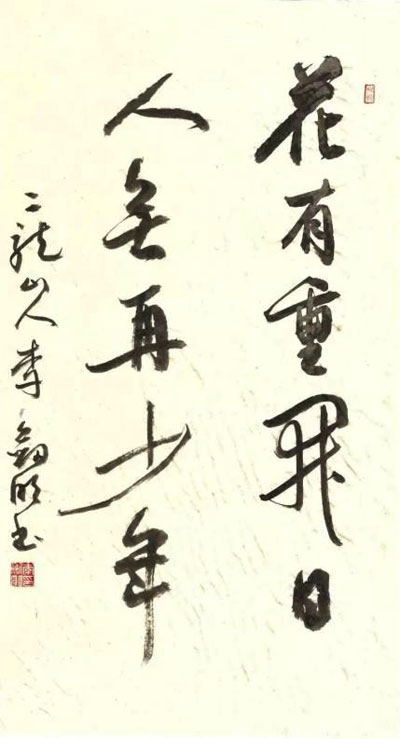 花有重開日
人無再少年
二龍山人李剑明书